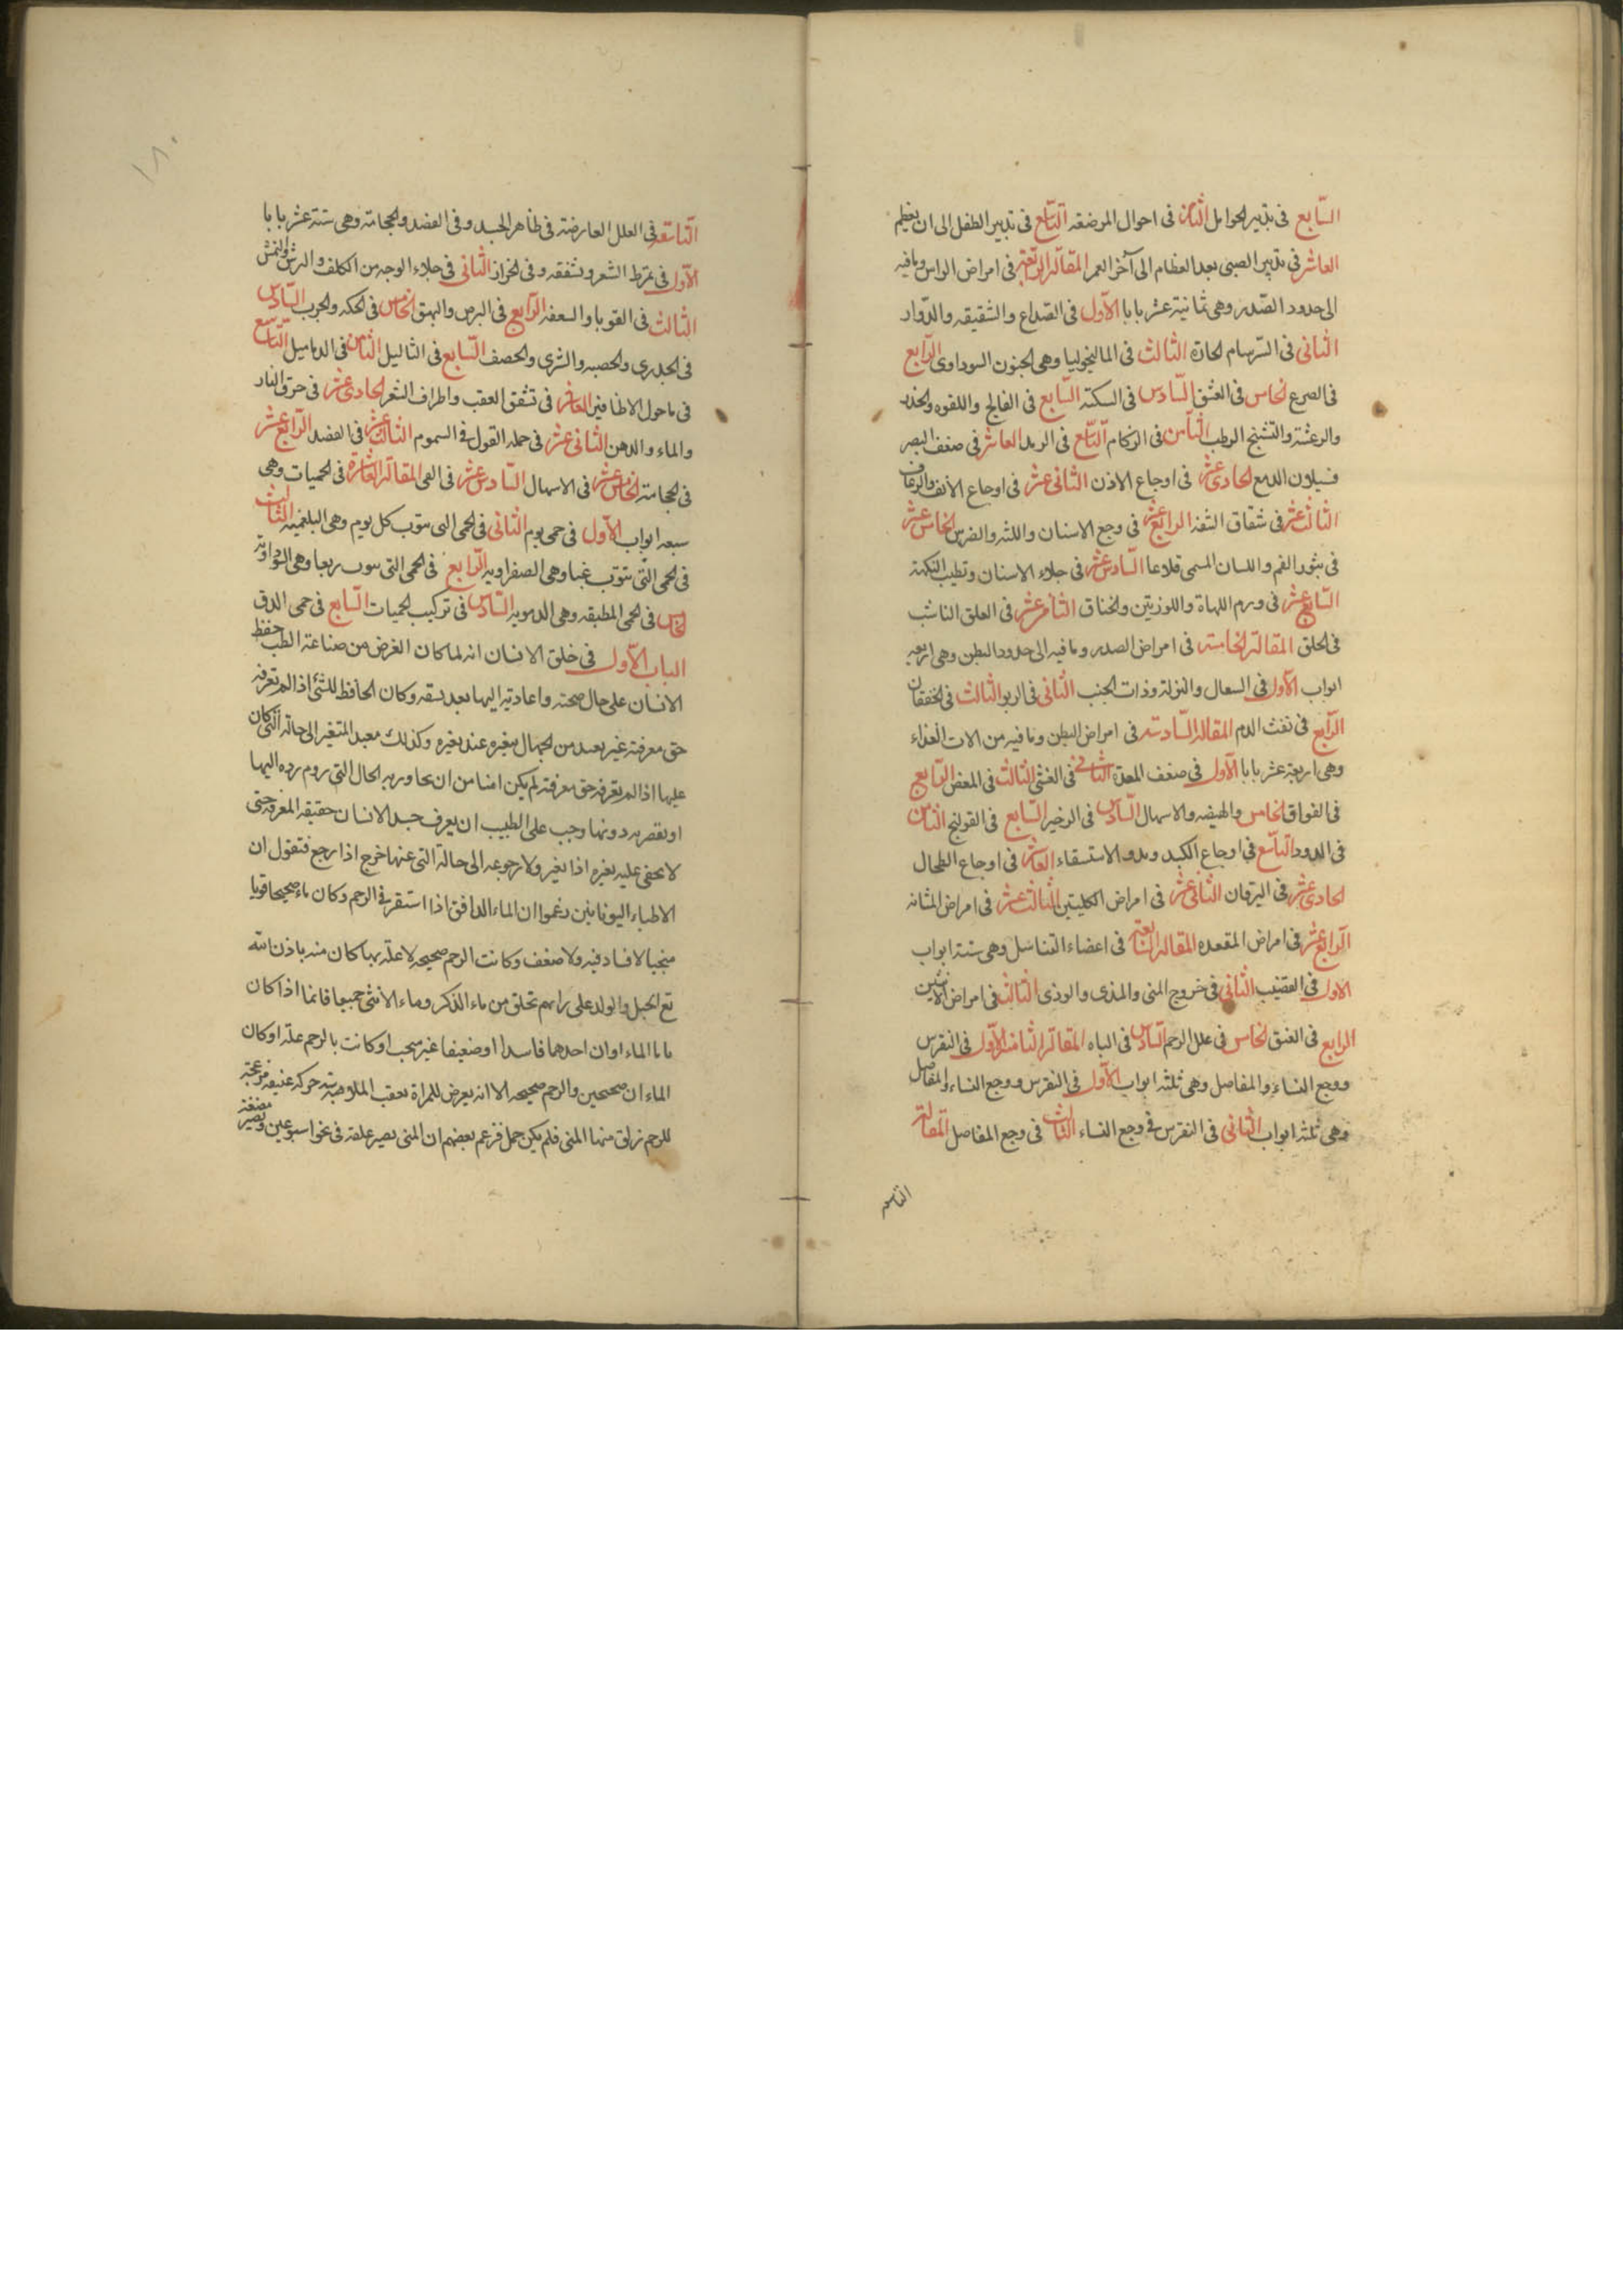 السّابع فى تدبير الحوامل الثامن فى احوال المرضعه التاسع فى تدبير الطفل الى ان يعظم
العاشر فى تدبير الصبى بعد العظام الى آخر العمر المقالة الرابعة فى امراض الراس وما فيه
الى حدود الصّدر وهى ثمانية عشر بابا الأوّل فى الصّداع والشقيقه والدّوار
الثانى فى السّرسام الحارة الثالث فى الماليخوليا وهى الجنون السوداوى الرّابع
فى الصرع الخامس فى العشق السّادس فى السكتة السّابع فى الفالج واللقوه والخدر
والرعشة والتشنج الرطب الثامن فى الزكام التاسع فى الرمد العاشر فى ضعف البصر
وسيلان الدمع الحادى عشر فى اوجاع الاذن الثانى عشر فى اوجاع الأنف والرعاف
الثالث عشر فى شقاق الشفة الرابع عشر فى وجع الاسنان واللثه والضرس الخامس عشر
فى بثور الفم واللسان المسمى قلاعا السّادس عشر فى جلاء الاسنان وتطيب النكهة
السّابع عشر فى ورم اللهاة واللوزتين والخناق الثامن عشر فى العلق الناشب
فى الحلق المقالة الخامسة فى امراض الصدر وما فيه الى حدود البطن وهى اربعه
ابواب الأوّل فى السعال والنزلة وذات الجنب الثانى فى الربو الثالث فى الخفقان
الرّابع فى نفث الدم المقالة السّادسة فى امراض البطن وما فيه من الات الغذاء
وهى اربعة عشر بابا الأوّل فى ضعف المعدة الثانى فى الغشى الثالث فى المغص الرّابع
فى الفواق الخامس والهيضه والاسهال السّادس فى الزحير السّابع فى القولنج الثامن
فى الدود التاسع فى اوجاع الكبد وبدو الاستسقاء العاشر فى اوجاع الطحال
الحادى عشر فى اليرقان الثانى عشر فى امراض الكليتين الثالث عشر فى امراض المثانه
الرّابع عشر فى امراض المقعده المقالة السّابعة فى اعضاء التناسل وهى ستة ابواب
الاول فى القضيب الثانى فى خروج المنى والمذى والوذى الثالث فى امراض الانثيين
الرابع فى الفتق الخامس فى علل الرحم السّادس فى الباه المقالة الثامنة الأوّل فى النقرس
ووجع النساء والمفاصل وهى ثلثه ابواب الأوّل فى النقرس ووجع النساء والمفاصل
وهى ثلثه ابواب الثانى فى النقرس فى وجع النساء الثالث فى وجع المفاصل المقالة
التاسعه
١٨٠
التاسعة فى العلل العارضة فى ظاهر الجسد وفى الفصد والحجامة وهى ستة عشر بابا
الأوّل فى تمرّط الشعر وتشققه وفى الحزاز الثانى فى جلاء الوجه من الكلف والبرش والنمش
الثالث فى القوبا والسعفه الرّابع فى البرص والبهق الخامس فى الحكه والجرب السّادس
فى الجدرى والحصبه والشرى والحصف السّابع فى الثاليل الثامن فى الدماميل التاسع
فى ما حول الاظافير العاشر فى تشقق العقب واطراف الشعر الحادى عشر فى حرق النار
والماء والدهن الثانى عشر فى جمله القول فى السموم الثالث عشر فى الفصد الرّابع عشر
فى الحجامة الخامس عشر فى الاسهال السّادس عشر فى القى المقالة العاشرة فى الحميات وهى
سبعه ابواب الأوّل فى حمى يوم الثانى فى الحمى التى تنوّب كل يوم وهى البلغميه الثالث
فى الحمى التّى تنوّب غبا وهى الصفراويه الرّابع فى الحمى التى تنوب ربعا وهى السّوداويّه
الخامس فى الحمى المطبقه وهى الدمويه السّادس فى تركيب الحميات السّابع فى حمى الدق
الباب الأوّل فى خلق الانسان انه لما كان الغرض من صناعة الطب حفظ
الانسان على حال صحته واعادته اليها بعد سقمه وكان الحافظ للشئ اذا لم تعرفه
حق معرفته غير بعيد من الجهال بتغيره عند تغيره وكذلك معيد المتغير الى حالته التى كان
عليها اذا لم يعرفه حق معرفته لم يكن امنا من ان يجاوز به الحال التى روم رده اليها
او يقصر به دونها وجب على الطبيب ان يعرف جسد الانسان حقيقه المعرفه حتى
لا يخفى عليه تغيره اذا تغير ولا رجوعه الى حالة التى عنها خرج اذا رجع فنقول ان
الاطباء اليونانيين زعموا ان الماء الدافق اذا استقر فى الرحم وكان ماء صحيحا قويا
منجبا لا فساد فيه ولا ضعف وكانت الرحم صحيحه لا علة بها كان منه باذن الله
تع الحبل والولد على رايهم تخلق من ماء الذكر وماء الأنثى جميعا فانما اذا كان
الماء او ان احدهما فاسدا او ضعيفا غير منجب او كانت بالرحم علة او كان
الماء ان صحيحين والرحم صحيحه الا انه يعرض للمراة بعقب الملامسة حركه عنيفه مزعجة
للرحم زلق منها المنى فلم يكن حمل فزعم بعضهم ان المنى يصير علقة فى نحو اسبوعين ويصير مضغة